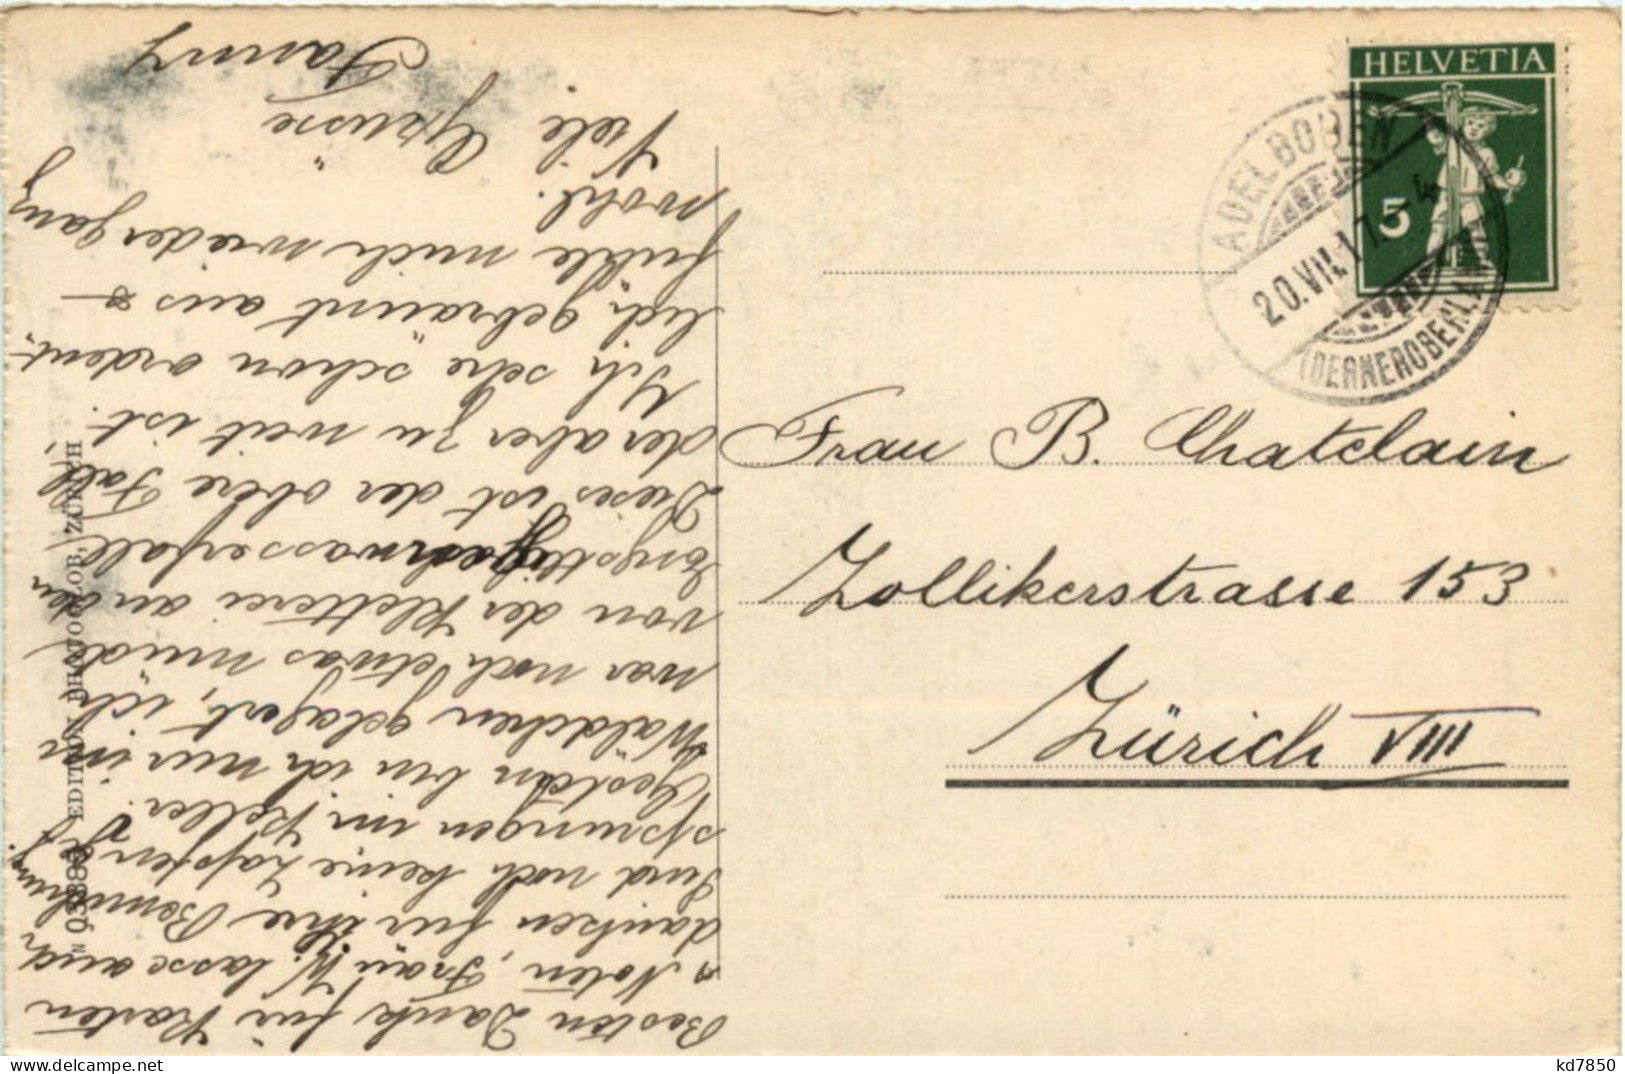 HELVETIA
5
ADELBODEN
20.VII.17.-4
(BERNEROBERLAND)
Frau B. Chatelain
Zollikerstrasse 153
Zürich VIII
Besten Dank für Karten
u Noten, Frau W. lasse auch
danken für ihre Bemühung.
Sind noch keine Zapfen ge-
sprungen im Keller?
Gestern bin ich nur im
Wäldchen gelagert, ich
war noch etwas müde
von der Kletterei an den
Engstligenwasserfall
Dieses ist der obere Fall
der aber zu weit ist.
Ich sehe schon ordent-
lich gebräunt aus &
fühle mich wieder ganz
wohl.
Viele Grüsse
Fanny
EDITION PHOTOGLOB, ZÜRICH
kd7850